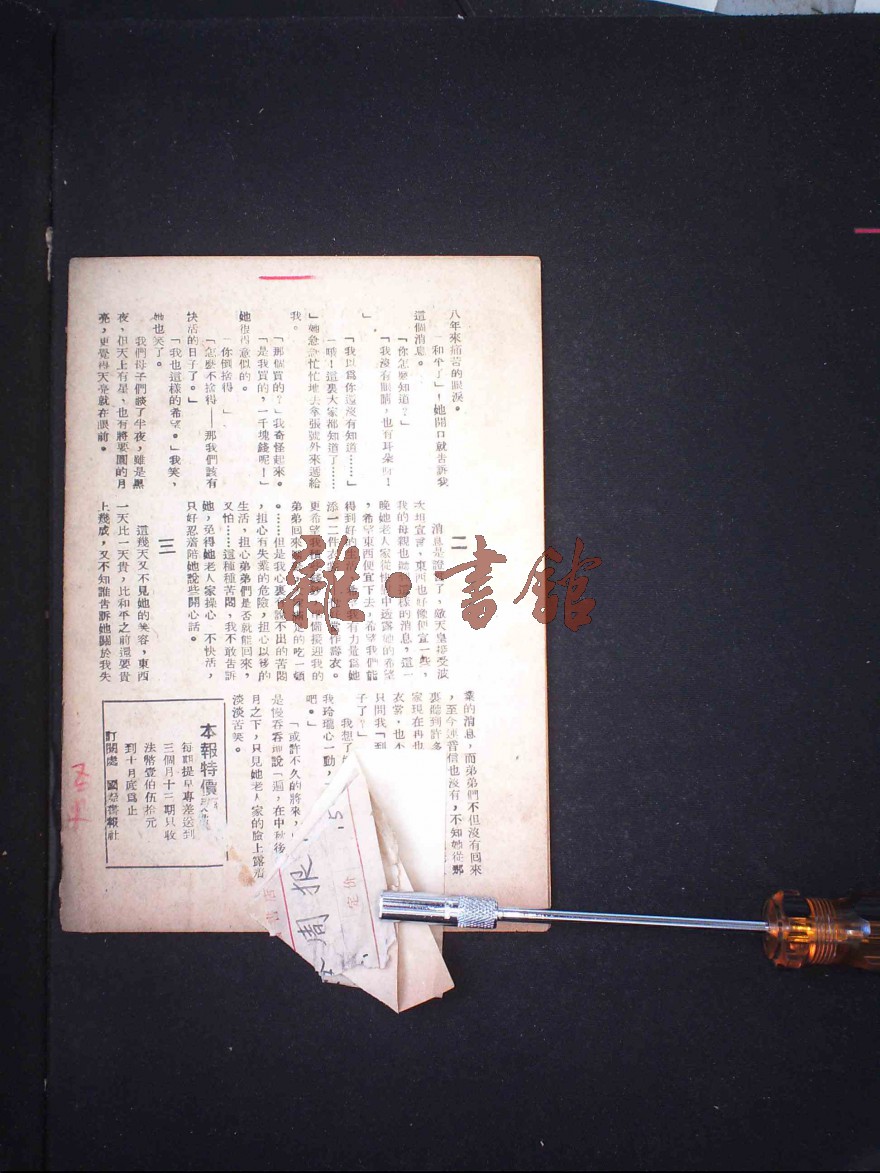 八年來痛苦的眼淚。
「和平了」!她開口就告訴我
這個消息。
「你怎麼知道?」
「我沒有眼睛,也有耳朵呀!
」
「我以爲你還沒有知道……」
「喂!這裏大家都知道了……
」她急急忙忙地去拿張號外來遞給
我。
「那個買的?」我奇怪起來。
「是我買的,一千塊錢呢!」
她很得意似的。
「你倒捨得 」
「怎麼不捨得——那我們該有
快活的日子了。」
「我也這樣的希望。」我笑,
她也笑了。
我們母子們談了半夜,雖是黑
夜,但天上有星,也有將要圓的月
亮,更覺得天亮就在眼前。
二
消息是證實了,敵天皇接受波
次坦宣言,東西也好像便宜一些,
我的母親也聽 這樣的消息,這一
晚她老人家從懷 中透露她的希望
,希望東西便宜下去,希望我們能
得到好的生 我有力量爲她
添一二件衣 作壽衣。
更希望我 備接迎我的
弟弟回來 的吃一頓
。……但是我心裏 說不出的苦悶
,担心有失業的危險,担心以後的
生活,担心弟弟們是否就能回來,
又怕……這種種苦悶,我不敢告訴
她,免得她老人家操心 不快活,
只好忍着陪她說些開心話。
三
這幾天又不見她的笑容,東西
一天比一天貴,比和平之前還要貴
上幾成,又不知誰告訴她關於我失
業的消息,而弟弟們不但沒有回來
,至今連音信也沒有,不知她從那
裏聽到許多
家現在再也
衣當,也不
只問我「到
子了?」
我想了
我玲瓏心一動,
吧。」
「或許不久的將來,
是慢吞吞地說一遍,在中秋後
月之下,只見她老人家的臉上露着
淡淡苦笑。
本報特價
每期提早專差送到
三個月十三期只收
法幣壹伯伍拾元
到十月底爲止
訂閱處 國際書報社
周报
定价
15
雜·書館